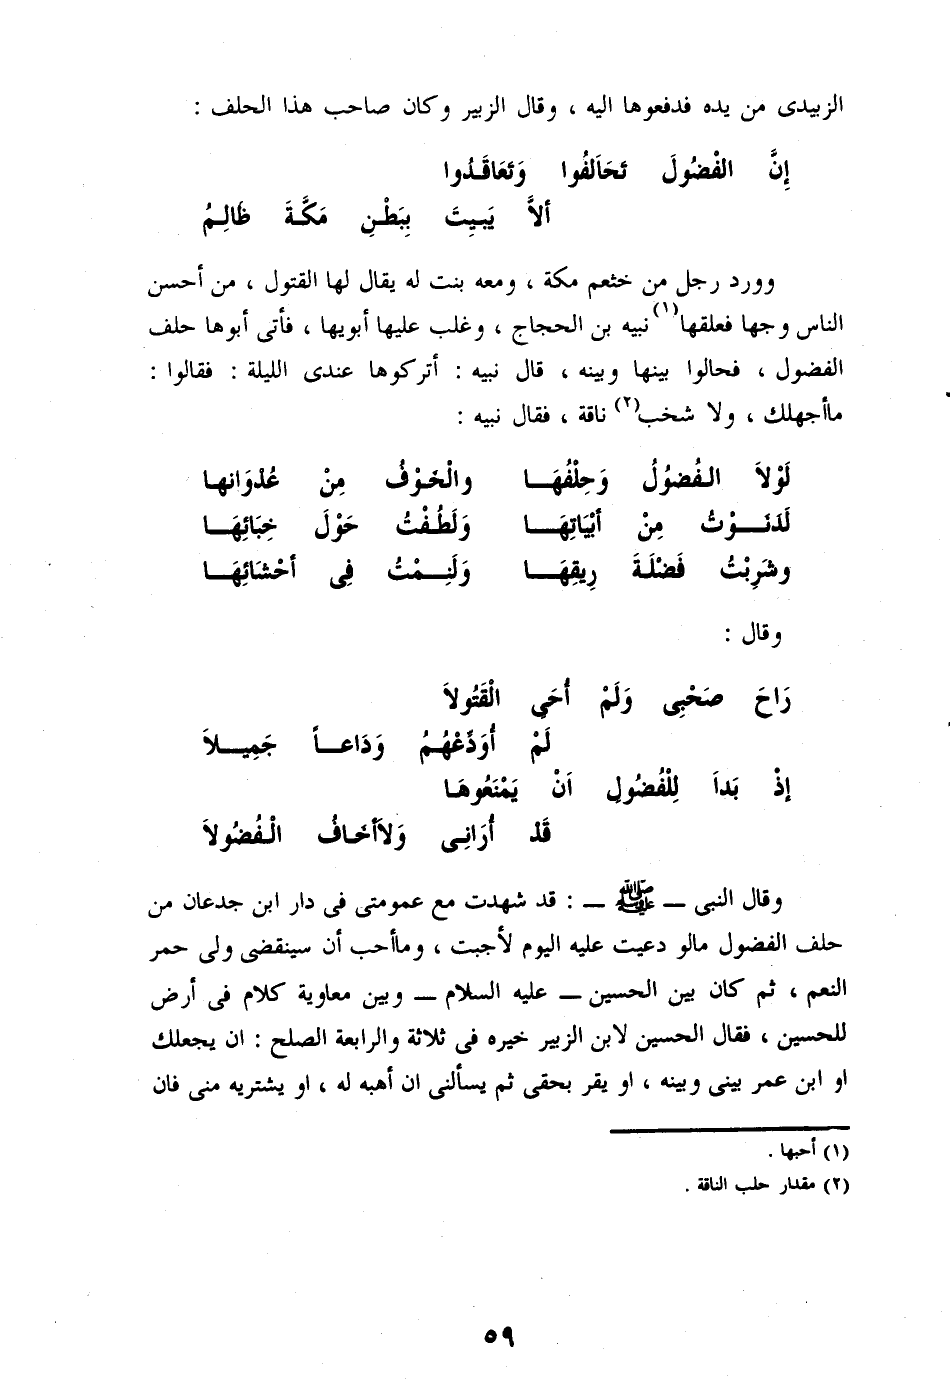 الزبيدى من يده فدفعوها اليه ، وقال الزبير وكان صاحب هذا الحلف :
إِنَّ الفْضُولَ تَحَالَفُوا وَتَعَاقَدُوا
ألاَّ يَبِيتَ بِبَطْنِ مَكَّةَ ظَالِمُ
وورد رجل من خثعم مكة ، ومعه بنت له يقال لها القتول ، من أحسن
الناس وجها فعلقها(١) نبيه بن الحجاج ، وغلب عليها أبويها ، فأتى أبوها حلف
الفضول ، فحالوا بينها وبينه ، قال نبيه : أتركوها عندى الليلة : فقالوا :
ماأجهلك ، ولا شخب(٢) ناقة ، فقال نبيه :
لَوْلاَ الفُضوُلُ وَحِلْفُهَـا والْخَوْفُ مِنْ عُدْوَانها
لَدَنَـوْتُ مِنْ أبْيَاتِهَـا وَلَطُفْتُ حَوْلَ خِبَائِهَـا
وشَرِبْتُ فَضْلَةَ رِيقِهَـا وَلَنِـمْتُ فِى أحْشَائِهَـا
وقال :
رَاحَ صَحْبِى وَلَمْ أُحَىِ الْقَتُولاَ
لَمْ أُوَدِّعْهُمُ وَدَاعـاً جَمِيـلاَ
إذْ بَدَا لِلْفُضُولِ اَنْ يَمْنَعُوهَا
قَدْ أُرَانِـى وَلاَأخَافُ الْفُضُولاَ
وقال النبى ـ ﷺ ـ : قد شهدت مع عمومتى فى دار ابن جدعان من
حلف الفضول مالو دعيت عليه اليوم لأجبت ، وماأحب أن سينقضى ولى حمر
النعم ، ثم كان بين الحسين ـ عليه السلام ـ وبين معاوية كلام فى أرض
للحسين ، فقال الحسين لابن الزبير خيره فى ثلاثة والرابعة الصلح : ان يجعلك
او ابن عمر بينى وبينه ، او يقر بحقى ثم يسألنى ان أهبه له ، او يشتريه منى فان
(١) أحبها .
(٢) مقدار حلب الناقة .
٥٩